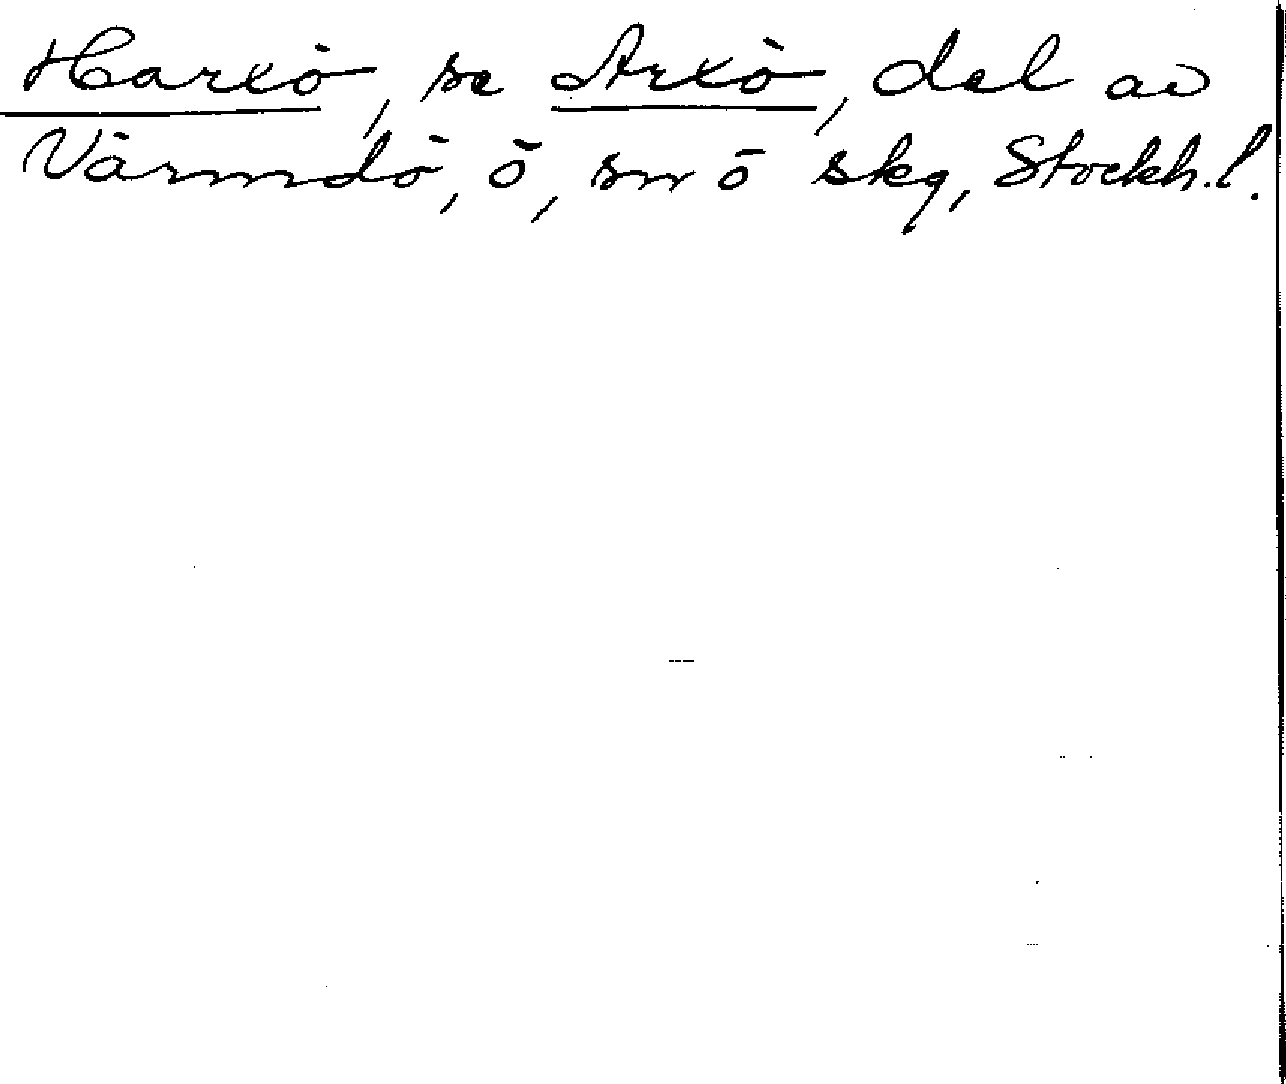 Harxö, se Arxö, del av
Värmdö, ö, sn ö skg, Stockh. l.